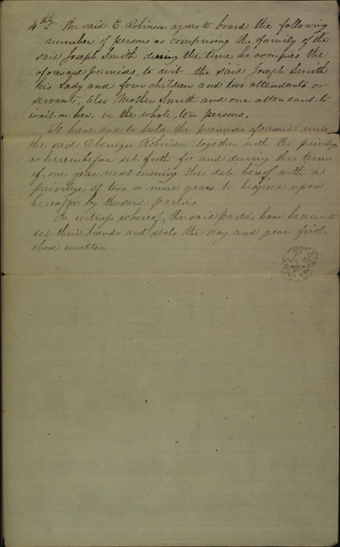 4thly The said E. Robinson agrees to board the following
number of persons as comprising the family of the
said Joseph Smith during the time he occupies the
aforesaid premises, to wit. the said Joseph Smith
his lady and four children and two attendants or
servants, also Mother Smith and one attendant to
wait on her, in the whole, ten persons.
To have and to hold the premises aforesaid unto
the said Ebenezer Robinson together with the privileges
as hereinbefore set forth for and during the term
of, one year next ensuing the date hereof with a
privilege of two or more years to be agreed upon
hereafter by the said Parties
In witness whereof, the said Parties have hereunto
set their hands and seals the day and year first
above written